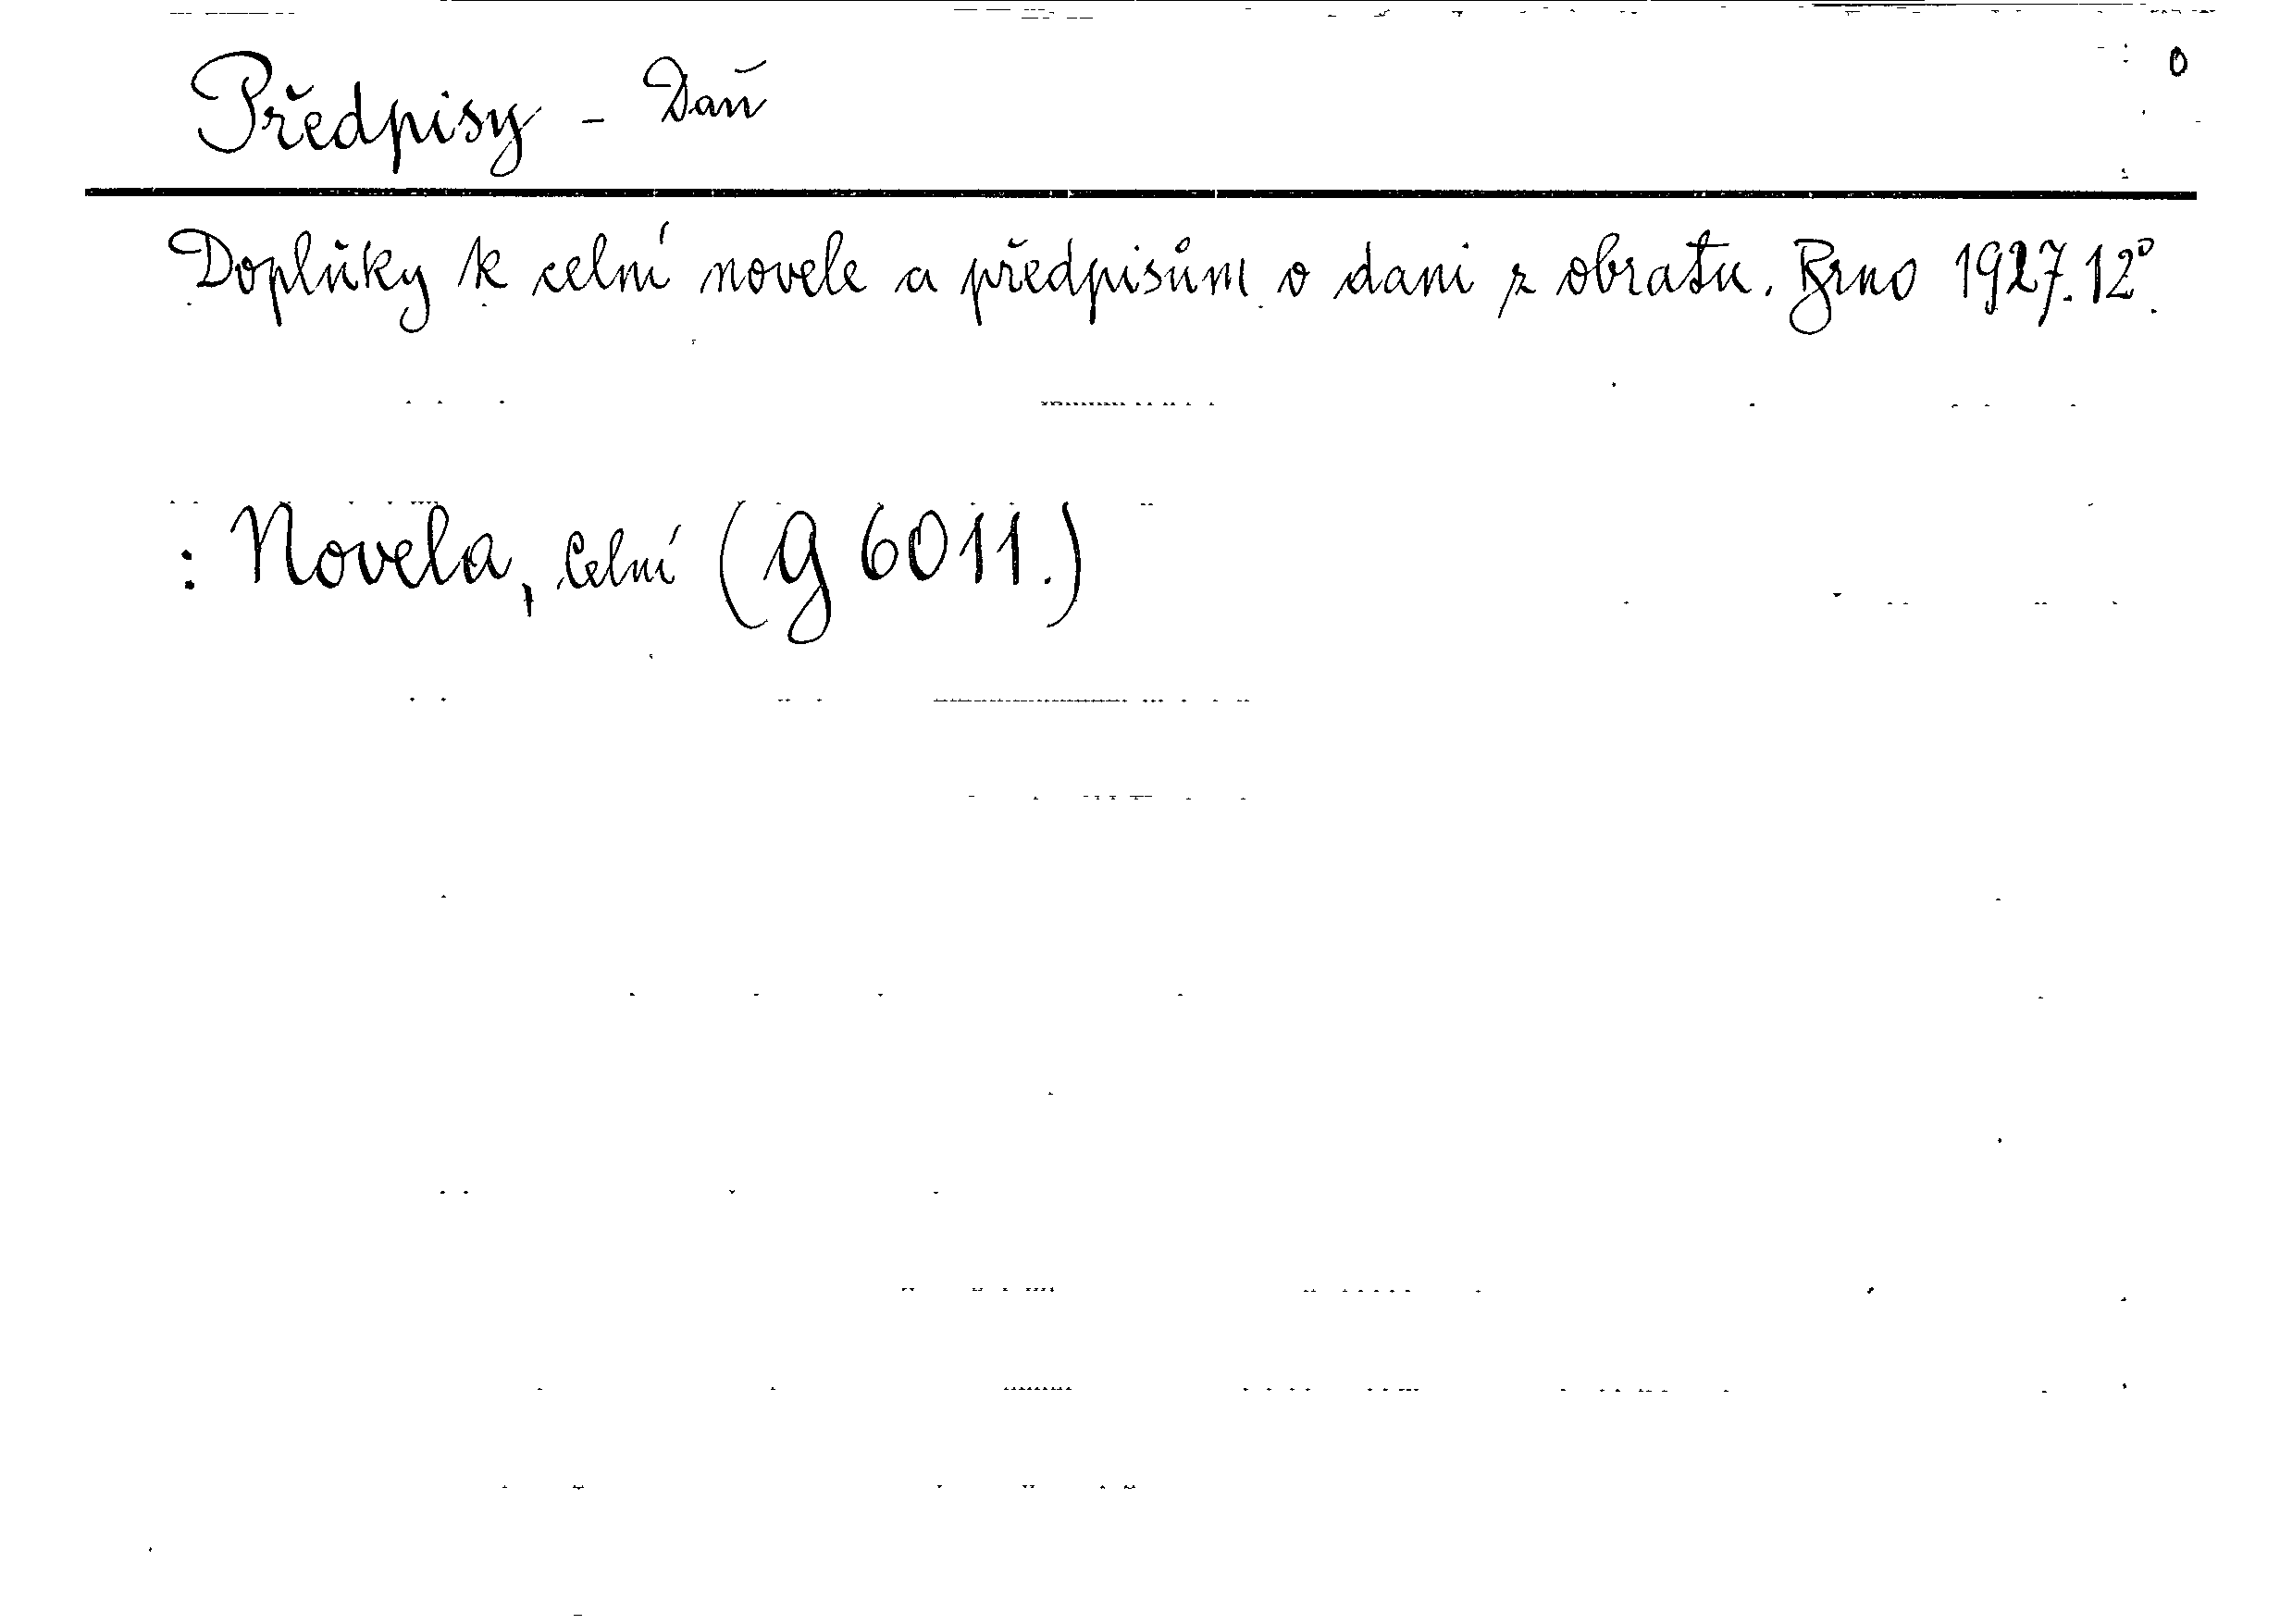 Předpisy - Daň
0
Doplňky k celní novele a předpisům o dani z obratu. Brno 1927. 12°.
: Novela, celní (g 6011.)